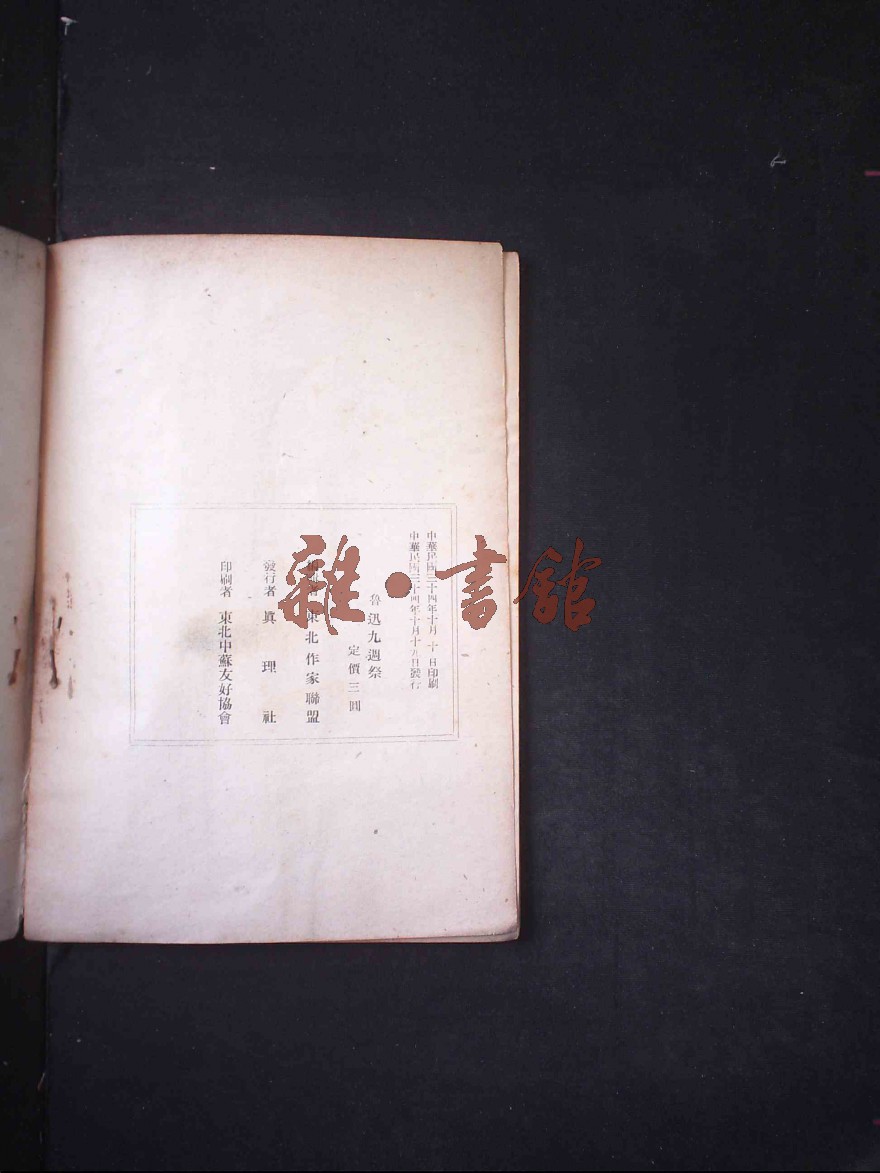 中華民國三十四年十月十日印刷
中華民國三十四年十月十九日發行
魯迅九週祭
定價三圓
東北作家聯盟
發行者 眞理社
印刷者 東北中蘇友好協會
雜·書館